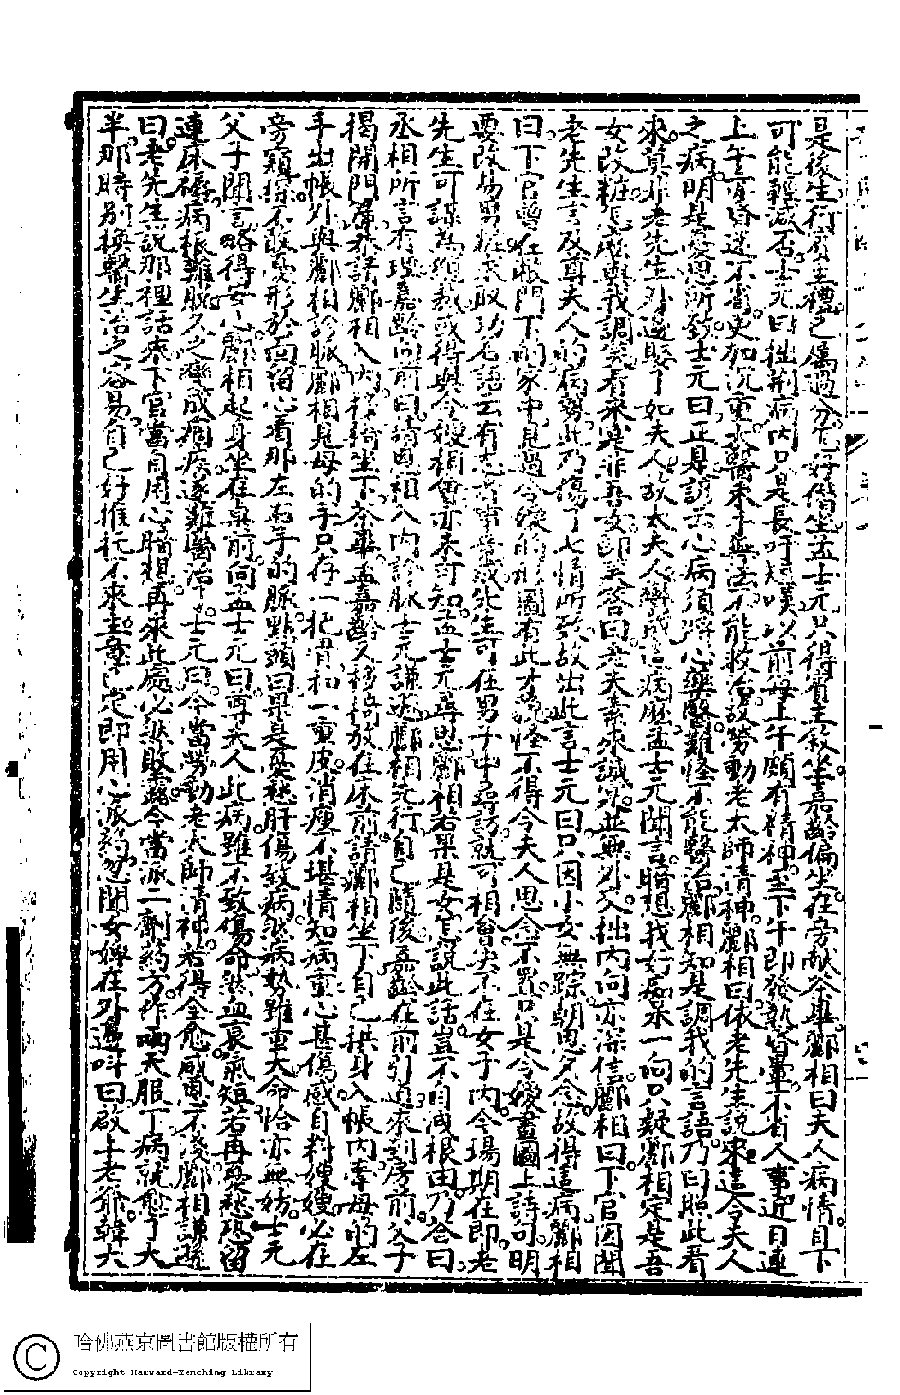 是後生何敢主禮已屬過分怎好僭坐孟士元只得賓主敘坐嘉齡偏坐在旁献茶畢酈相曰夫人病情目下
可能輕减否士元曰拙荆病内只是長吁短嘆以前每上午頗有精神至下午即發熱昏暈不省人事近日連
上午亦昏迷不省更加沉重衆醫束手無法不能救治故勞動老太師清神酈相曰依老先生說來這令夫人
之病明是憂思所致士元曰正是諺云心病須將心藥醫難怪不能醫治酈相知是調我的言語乃曰照此看
來真非老先生外邊娶了如夫人故太夫人釀成這病麽孟士元聞言暗想我好意求一向只疑酈相定是吾
女改粧怎敢與我調笑看來是非吾女即笑答曰老夫素來誠實並無外父拙内向亦深信酈相曰下官因聞
老先生言及尊夫人的病勢此乃傷了七情所致故出此言士元曰只因小女無踪朝思夕念故得這病酈相
曰下官曾在恨門下的家中見過令嫒的形圖有此才貌怪不得令夫人思念不置只是令嫒畫圖上詩句明
要改易男粧求取功名語云有志者事竟成先生可在男子中尋訪就可相會矣不在女子内今場期在即老
先生可謀為總裁或得與令嫂相會亦未可知孟士元尋思酈相若果是女怎說此話豈不自洩根由乃答曰
丞相所言有理嘉齡向前曰請恩相入内診脉士元謙遜酈相先行自己隨後嘉齡在前引道來到房前父子
揭開門簾恭請酈相入内傍椅坐下茶畢孟嘉齡又移椅放在床前請酈相坐下自己挨身入帳内牽母的左
手出帳外與酈相診脉酈相見母的手只存一把骨和一重皮消瘦不堪情知病重心甚傷感自料嫂嫂必在
旁窺探不敢憂形於面留心看那左右手的脉點頭曰果是憂愁肝傷致病然病势雖重大命恰亦無妨士元
父子聞言略得安心酈相起身坐在桌前向孟士元曰尊夫人此病雖不致傷命然血衰氣短若再憂愁恐留
連床褥病根難脫久之變成痼疾遂難醫治士元曰今當勞動老太師清神若得全愈感恩不淺酈相謙遜
曰老先生說那裡話來下官當自用心暗想再來此處必然敗露今當派二劑藥方作兩天服下病就愈了大
半那時别換醫生治之容易自己好推托不來主意已定即用心派藥忽聞女婢在外邊叫曰啟上老爺韓大
哈佛燕京圖書館版權所有
Copyright Harvard-Yenching Library